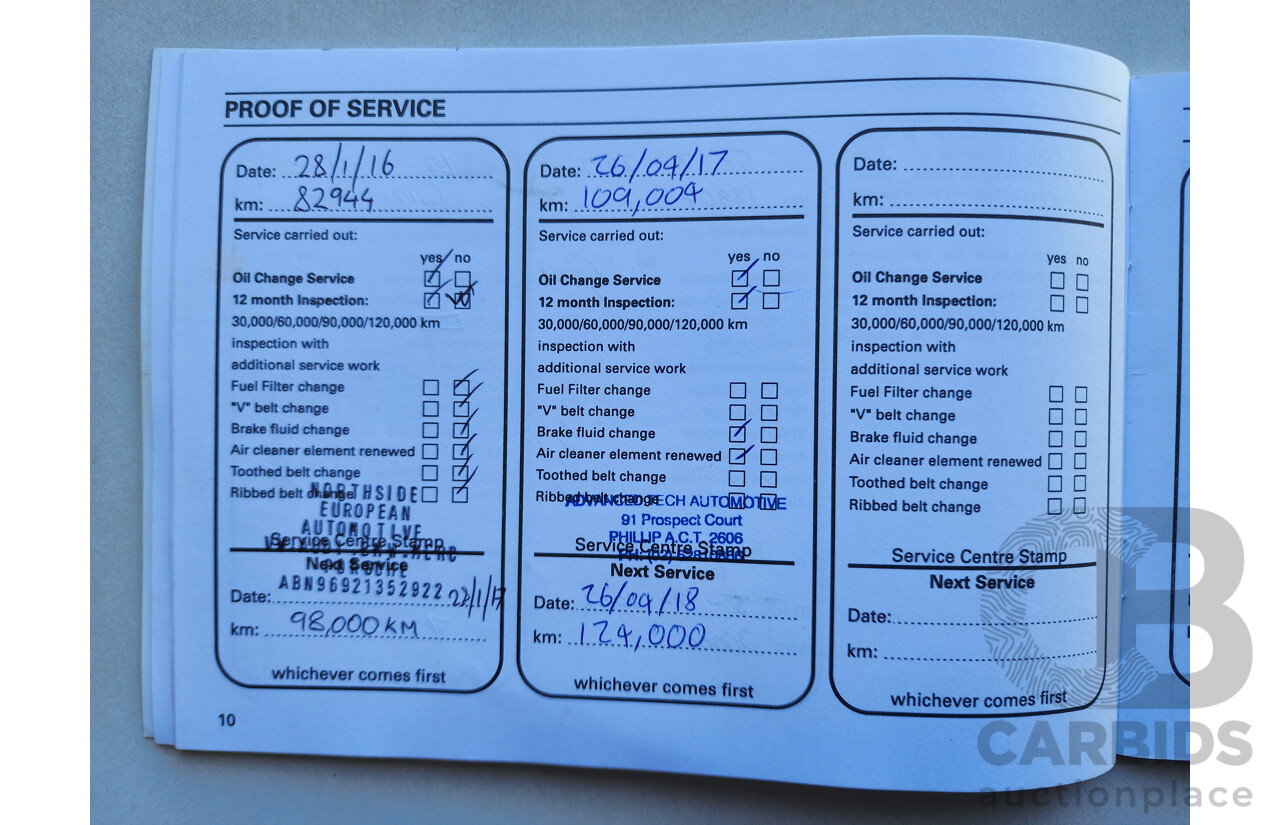 PROOF OF SERVICE
Date: 28/1/16
km: 82944
Service carried out:
yes no
Oil Change Service
12 month Inspection:
30,000/60,000/90,000/120,000 km
inspection with
additional service work
Fuel Filter change
"V" belt change
Brake fluid change
Air cleaner element renewed
Toothed belt change
Ribbed belt change
NORTHSIDE
EUROPEAN
AUTOMOTIVE
Service Centre Stamp
PORSCHE
Next Service
ABN96921352922
Date: 28/1/17
km: 98,000 KM
whichever comes first
10
Date: 26/09/17
km: 109,004
Service carried out:
yes no
Oil Change Service
12 month Inspection:
30,000/60,000/90,000/120,000 km
inspection with
additional service work
Fuel Filter change
"V" belt change
Brake fluid change
Air cleaner element renewed
Toothed belt change
Ribbed belt change
ADVANCED TECH AUTOMOTIVE
91 Prospect Court
PHILLIP A.C.T. 2606
Service Centre Stamp
Next Service
Date: 26/09/18
km: 124,000
whichever comes first
Date:
km:
Service carried out:
yes no
Oil Change Service
12 month Inspection:
30,000/60,000/90,000/120,000 km
inspection with
additional service work
Fuel Filter change
"V" belt change
Brake fluid change
Air cleaner element renewed
Toothed belt change
Ribbed belt change
Service Centre Stamp
Next Service
Date:
km:
whichever comes first
CARBIDS
auctionplace